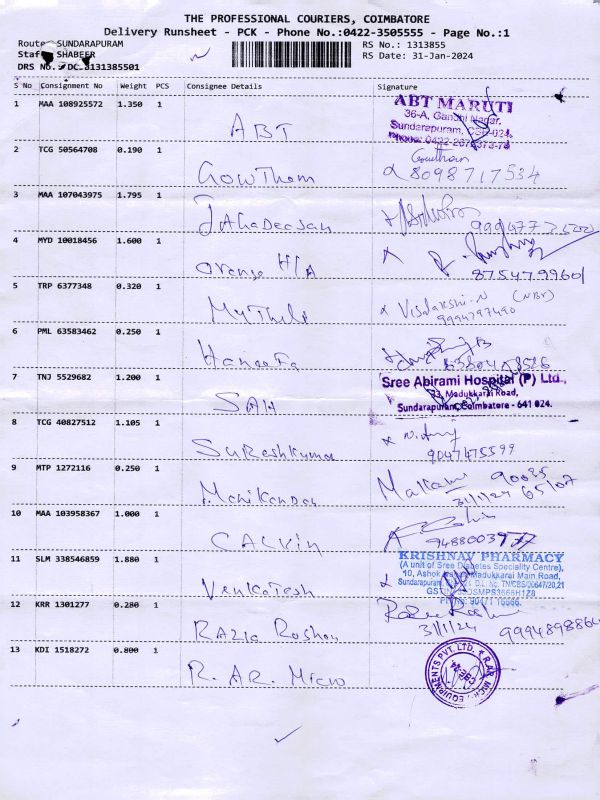 THE PROFESSIONAL COURIERS, COIMBATORE
Delivery Runsheet - PCK - Phone No.:0422-3505555 - Page No.:1
Route: SUNDARAPURAM
RS No.: 1313855
Staff: SHABEER
RS Date: 31-Jan-2024
DRS No.: DC 3131385501
S No Consignment No Weight PCS Consignee Details Signature
1 MAA 108925572 1.350 1 ABT
ABT MARUTI
36-A, Gandhi Nagar,
Sundarapuram, CBE-024.
Phone: 0422-2673373-74
2 TCG 50564708 0.190 1 Gowtham
Goutham
8098717534
3 MAA 107043975 1.795 1 Jahadeesan
4 MYD 10018456 1.600 1 Orange
8754799601
5 TRP 6377348 0.320 1 Mythili
Visalakshi.N (NBR)
9994797490
6 PML 63583462 0.250 1 Haneefa
7 TNJ 5529682 1.200 1 SAH
Sree Abirami Hospital (P) Ltd.,
33, Madukkarai Road,
Sundarapuram, Coimbatore - 641 024.
8 TCG 40827512 1.105 1 Sureshkumar
9047475599
9 MTP 1272116 0.250 1 Manikandan
90035
31/1/24 65107
10 MAA 103958367 1.000 1 CALVIN
11 SLM 338546859 1.880 1 Venkatesh
KRISHNAV PHARMACY
(A unit of Sree Diabetes Speciality Centre),
10, Ashok Madukkarai Main Road,
Sundarapuram,
12 KRR 1301277 0.280 1 Razia Roshan
31/1/24
13 KDI 1518272 0.800 1 R. AR. Micro